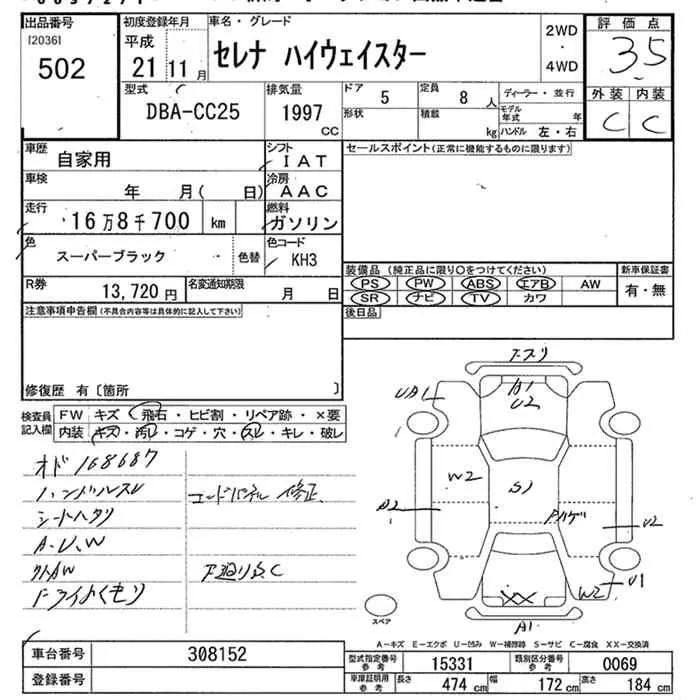 出品番号
[2036]
502
初度登録年月
平成
21 11月
車名・グレード
セレナ ハイウェイスター
2WD
・
4WD
評価点
3.5
外装 内装
C C
型式
DBA-CC25
排気量
1997
CC
ドア
5
定員
8人
形状
積載
kg
ディーラー・並行
モデル年式 年
ハンドル 左・右
車歴
自家用
シフト
IAT
車検
年 月( 日)
冷房
AAC
走行
16万8千700 km
燃料
ガソリン
色
スーパーブラック
色替
色コード
KH3
R券
13,720円
名変通知期限
月 日
セールスポイント(正常に機能するものに限ります)
装備品(純正品に限り○をつけてください)
PS PW ABS エアB AW
SR ナビ TV カワ
新車保証書
有・無
後日品
注意事項申告欄(不具合内容等は具体的に記入して下さい)
修復歴 有〔箇所 〕
検査員記入欄
FW キズ・飛石・ヒビ割・リペア跡・×要
内装 キズ・汚レ・コゲ・穴・スレ・キレ・破レ
オド 168687
ハンドルスレ
シートヘタリ
A.U.W
コードパネル 修正
下廻りS.C
UA1
A1
U2
W2
S1
A2
U2
U1
W2
XX
A1
スペア
A-キズ E-エクボ U-凹み W-補修跡 S-サビ C-腐食 XX-交換済
車台番号
308152
登録番号
型式指定番号
参考
15331
類別区分番号
参考
0069
車庫証明用
参考
長さ
474cm
幅
172cm
高さ
184cm